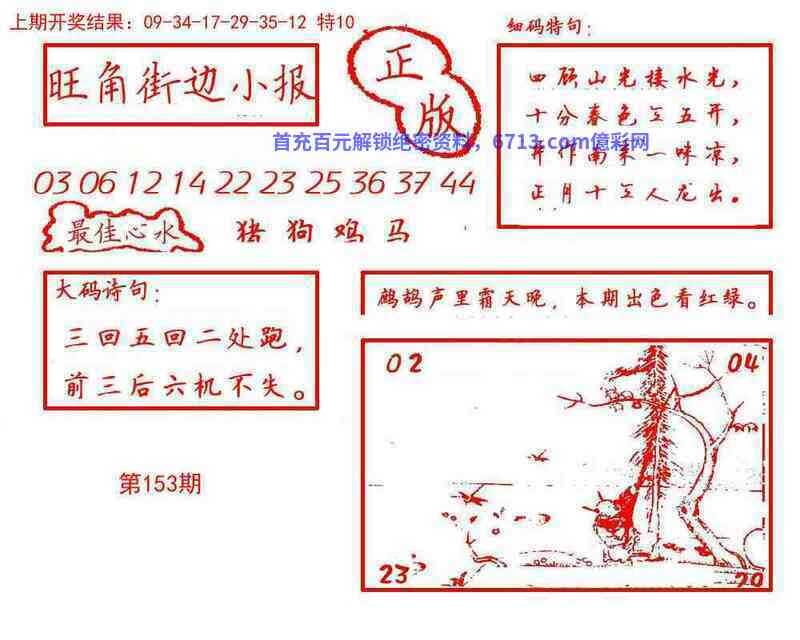 上期开奖结果：09-34-17-29-35-12 特10
细码特句：
旺角街边小报
正版
四顾山光接水光，
十分春色三五开，
首充百元解锁绝密资料，6713.com億彩网
并作南来一味凉，
正月十五人龙出。
03 06 12 14 22 23 25 36 37 44
最佳心水
猪狗鸡马
大码诗句：
三回五回二处跑，
前三后六机不失。
鹧鸪声里霜天晚，本期出色看红绿。
02
04
23
20
第153期